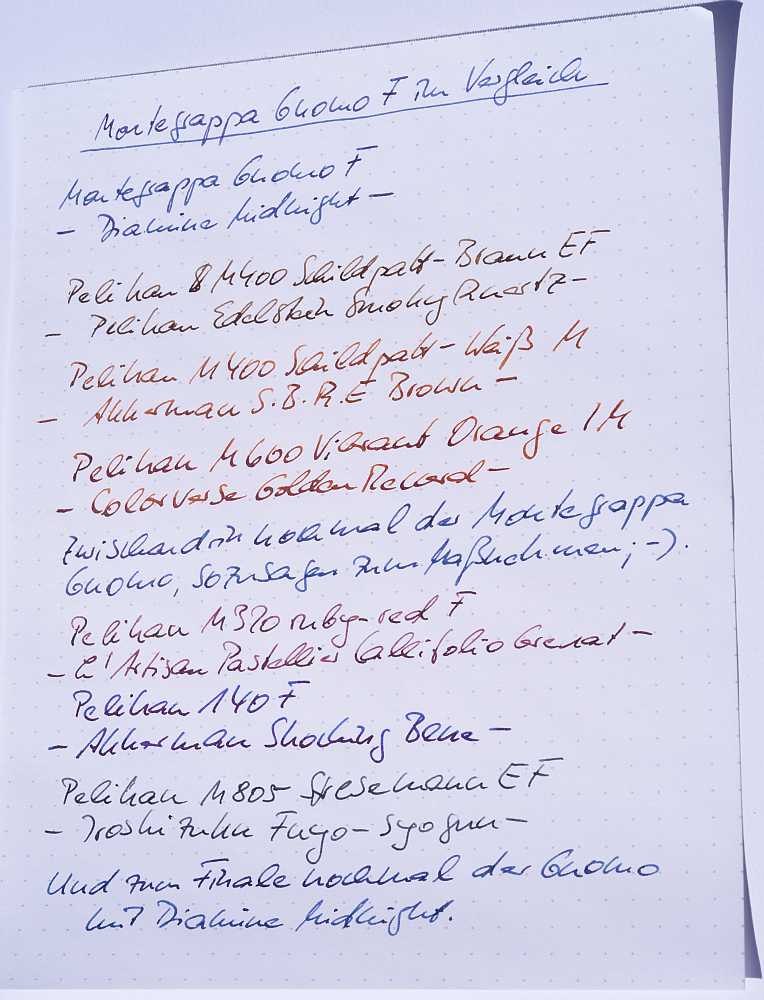 Montegrappa Gnomo F im Vergleich
Montegrappa Gnomo F
– Diamine Midnight –
Pelikan M400 Schildpatt-Braun EF
– Pelikan Edelstein Smoky Quartz –
Pelikan M400 Schildpatt-Weiß M
– Akkerman S.B.R.E Brown –
Pelikan M600 Vibrant Orange IM
– Colorverse Golden Record –
Zwischendrin nochmal der Montegrappa
Gnomo, sozusagen zum Maßnehmen ;-).
Pelikan M320 ruby-red F
– L'Artisan Pastellier Callifolio Grenat –
Pelikan 140 F
– Akkerman Shocking Blue –
Pelikan M805 Stresemann EF
– Iroshizuku Fuyo-Syogun –
Und zum Finale nochmal der Gnomo
mit Diamine Midnight.